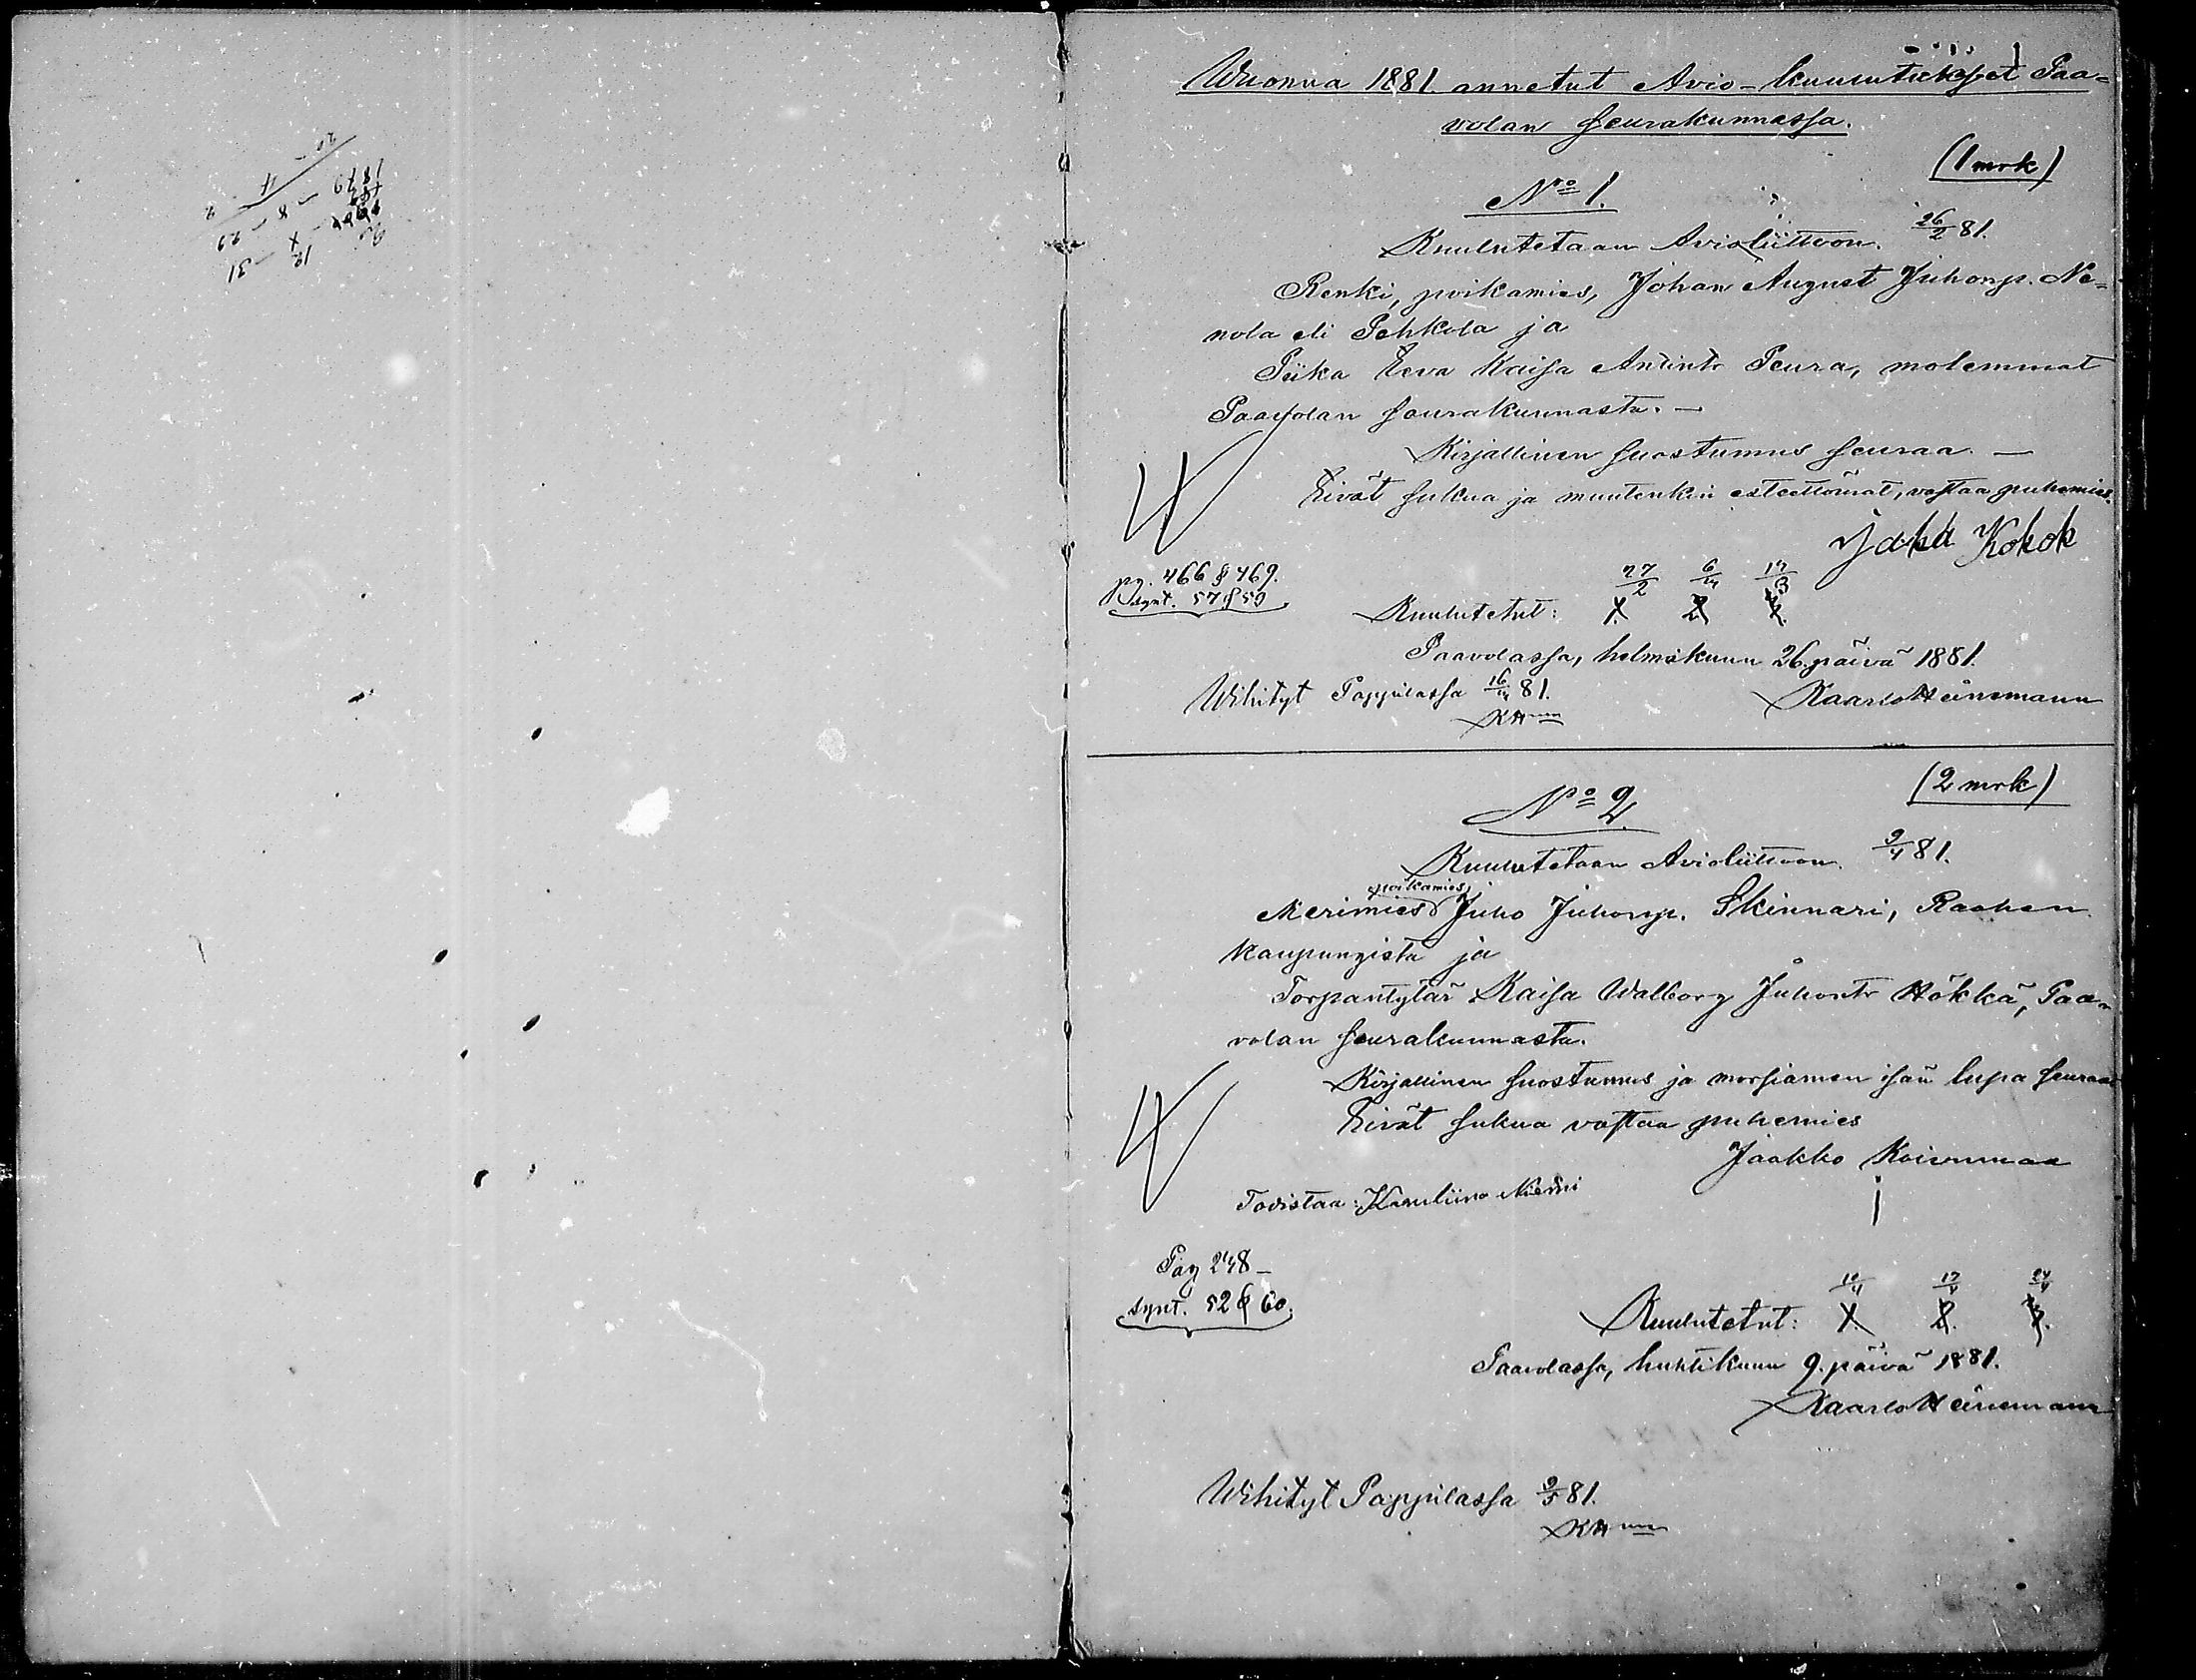 Wuonna 1881. annetut Avio-kuulutukset Paa=
volan seurakunnassa.
(1 mrk)
No 1.
Kuulutetaan Avioliittoon. 26/2 81.
Renki, poikamies, Johan August Juhonp. Ne=
nola eli Pehkola ja
Piika Eeva Kaisa Antintr Peura, molemmat
Paavolan seurakunnasta. —
Kirjallinen suostumus seuraa. —
Eivät sukua ja muutenkin esteettömät, vastaa puhemies.
Kokok
pg. 466 & 469.
synt. 57 & 59
27/2 6/3 13/3
Kuulutetut: 1. 2. 3.
Paavolassa, helmikuun 26. päivä 1881.
Wihityt Pappilassa 81.
Kaarlo Heinemann
KHnn
(2 mrk)
No 2.
Kuulutetaan Avioliittoon. 9/4 81.
poikamies,
Merimies Juho Juhonp. Skinnari, Raahen
kaupungista ja
Torpantytär Kaisa Walborg Juhontr Hökkä, Paa=
volan seurakunnasta.
Kirjallinen suostumus ja morsiamen isän lupa seuraa
Eivät sukua vastaa puhemies
Jaakko Koivumaa
Todistaa: Karuliina Niemi
Pag 248 —
synt. 52 & 60.
10/4 17/4 24/4
Kuulutetut: 1. 2. 3.
Paavolassa, huhtikuun 9. päivä 1881.
Kaarlo Heinemann
Wihityt Pappilassa 9/5 81.
KHnn